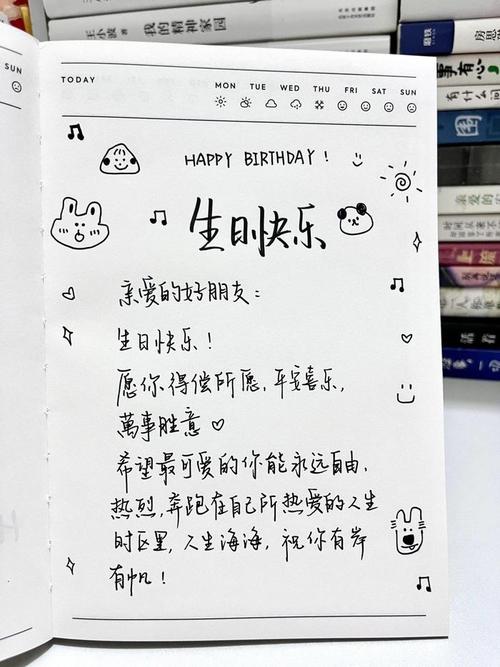 SUN
TODAY
MON TUE WED THU FRI SAT SUN
HAPPY BIRTHDAY !
生日快乐
亲爱的好朋友：
生日快乐！
愿你得偿所愿，平安喜乐，
萬事胜意♡
希望最可爱的你能永远自由、
热烈，奔跑在自己所热爱的人生
时区里，人生海海，祝你有岸
有帆！
王小波
我的精神家园
事有心
有什么
围
亲爱的
上流
活着